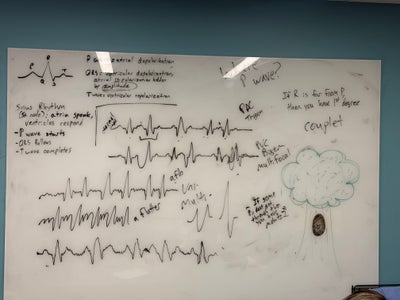 P
R
T
Q
S
P = atrial depolarization
QRS = ventricular depolarization,
atrial repolarization hidden
by amplitude
T wave = ventricular repolarization
Sinus Rhythm
(SA node); atria speak,
ventricles respond
-P wave starts
-QRS follows
-T wave completes
Where
P wave?
If R is far from P,
then you have 1st degree
couplet
PVC
PVC
Bigem
multifocal
afib
a flutter
Uni-
Multi-
If some